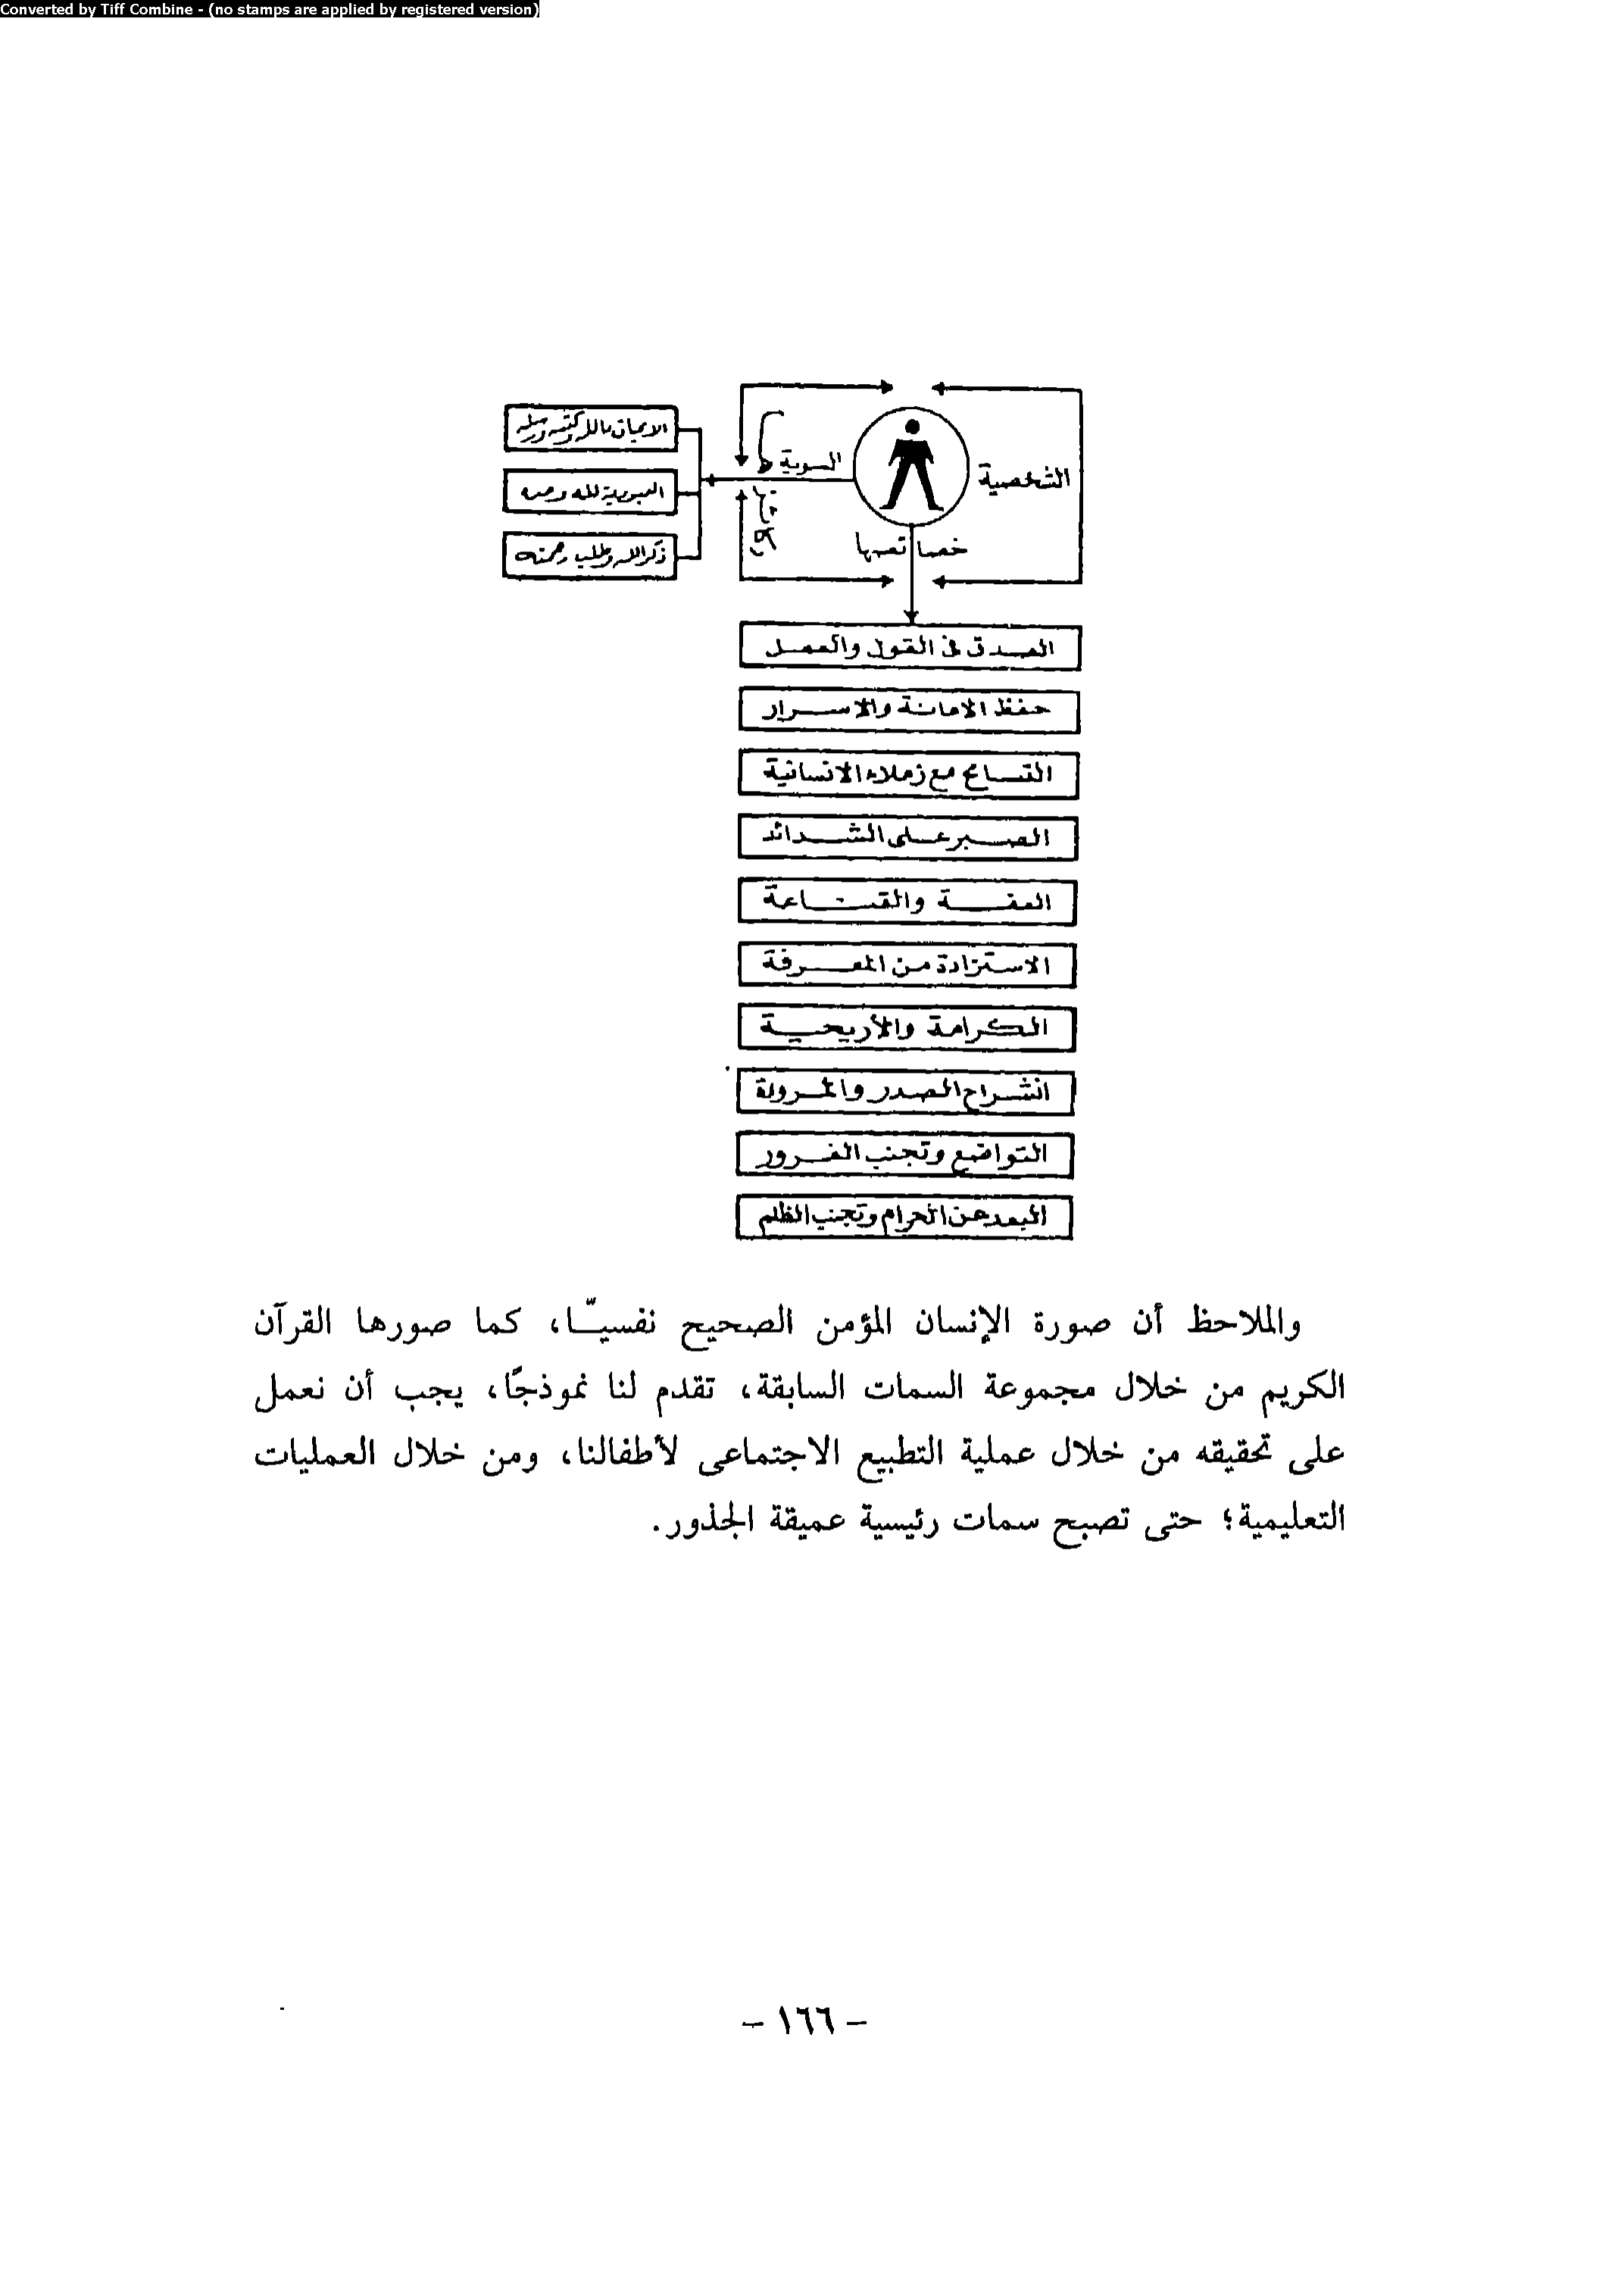 Converted by Tiff Combine - (no stamps are applied by registered version)
الشخصية
السوية
خصائصها
الايمان بالله وكتبه ورسله
العبودية لله وحده
ذكر الله وطلب رحمته
الصدق فى القول والعمل
حفظ الامانة والاسرار
التسامح مع زملاء الانسانية
الصبر على الشدائد
العفة والقناعة
الاستزادة من المعرفة
الكرامة والأريحية
انشراح الصدر والمرونة
التواضع وتجنب الغرور
البعد عن الحرام وتجنب الظلم
والملاحظ أن صورة الإنسان المؤمن الصحيح نفسيـًّا، كما صورها القرآن
الكريم من خلال مجموعة السمات السابقة، تقدم لنا نموذجًا، يجب أن نعمل
على تحقيقه من خلال عملية التطبيع الاجتماعى لأطفالنا، ومن خلال العمليات
التعليمية؛ حتى تصبح سمات رئيسية عميقة الجذور.
– ١٦٦ –